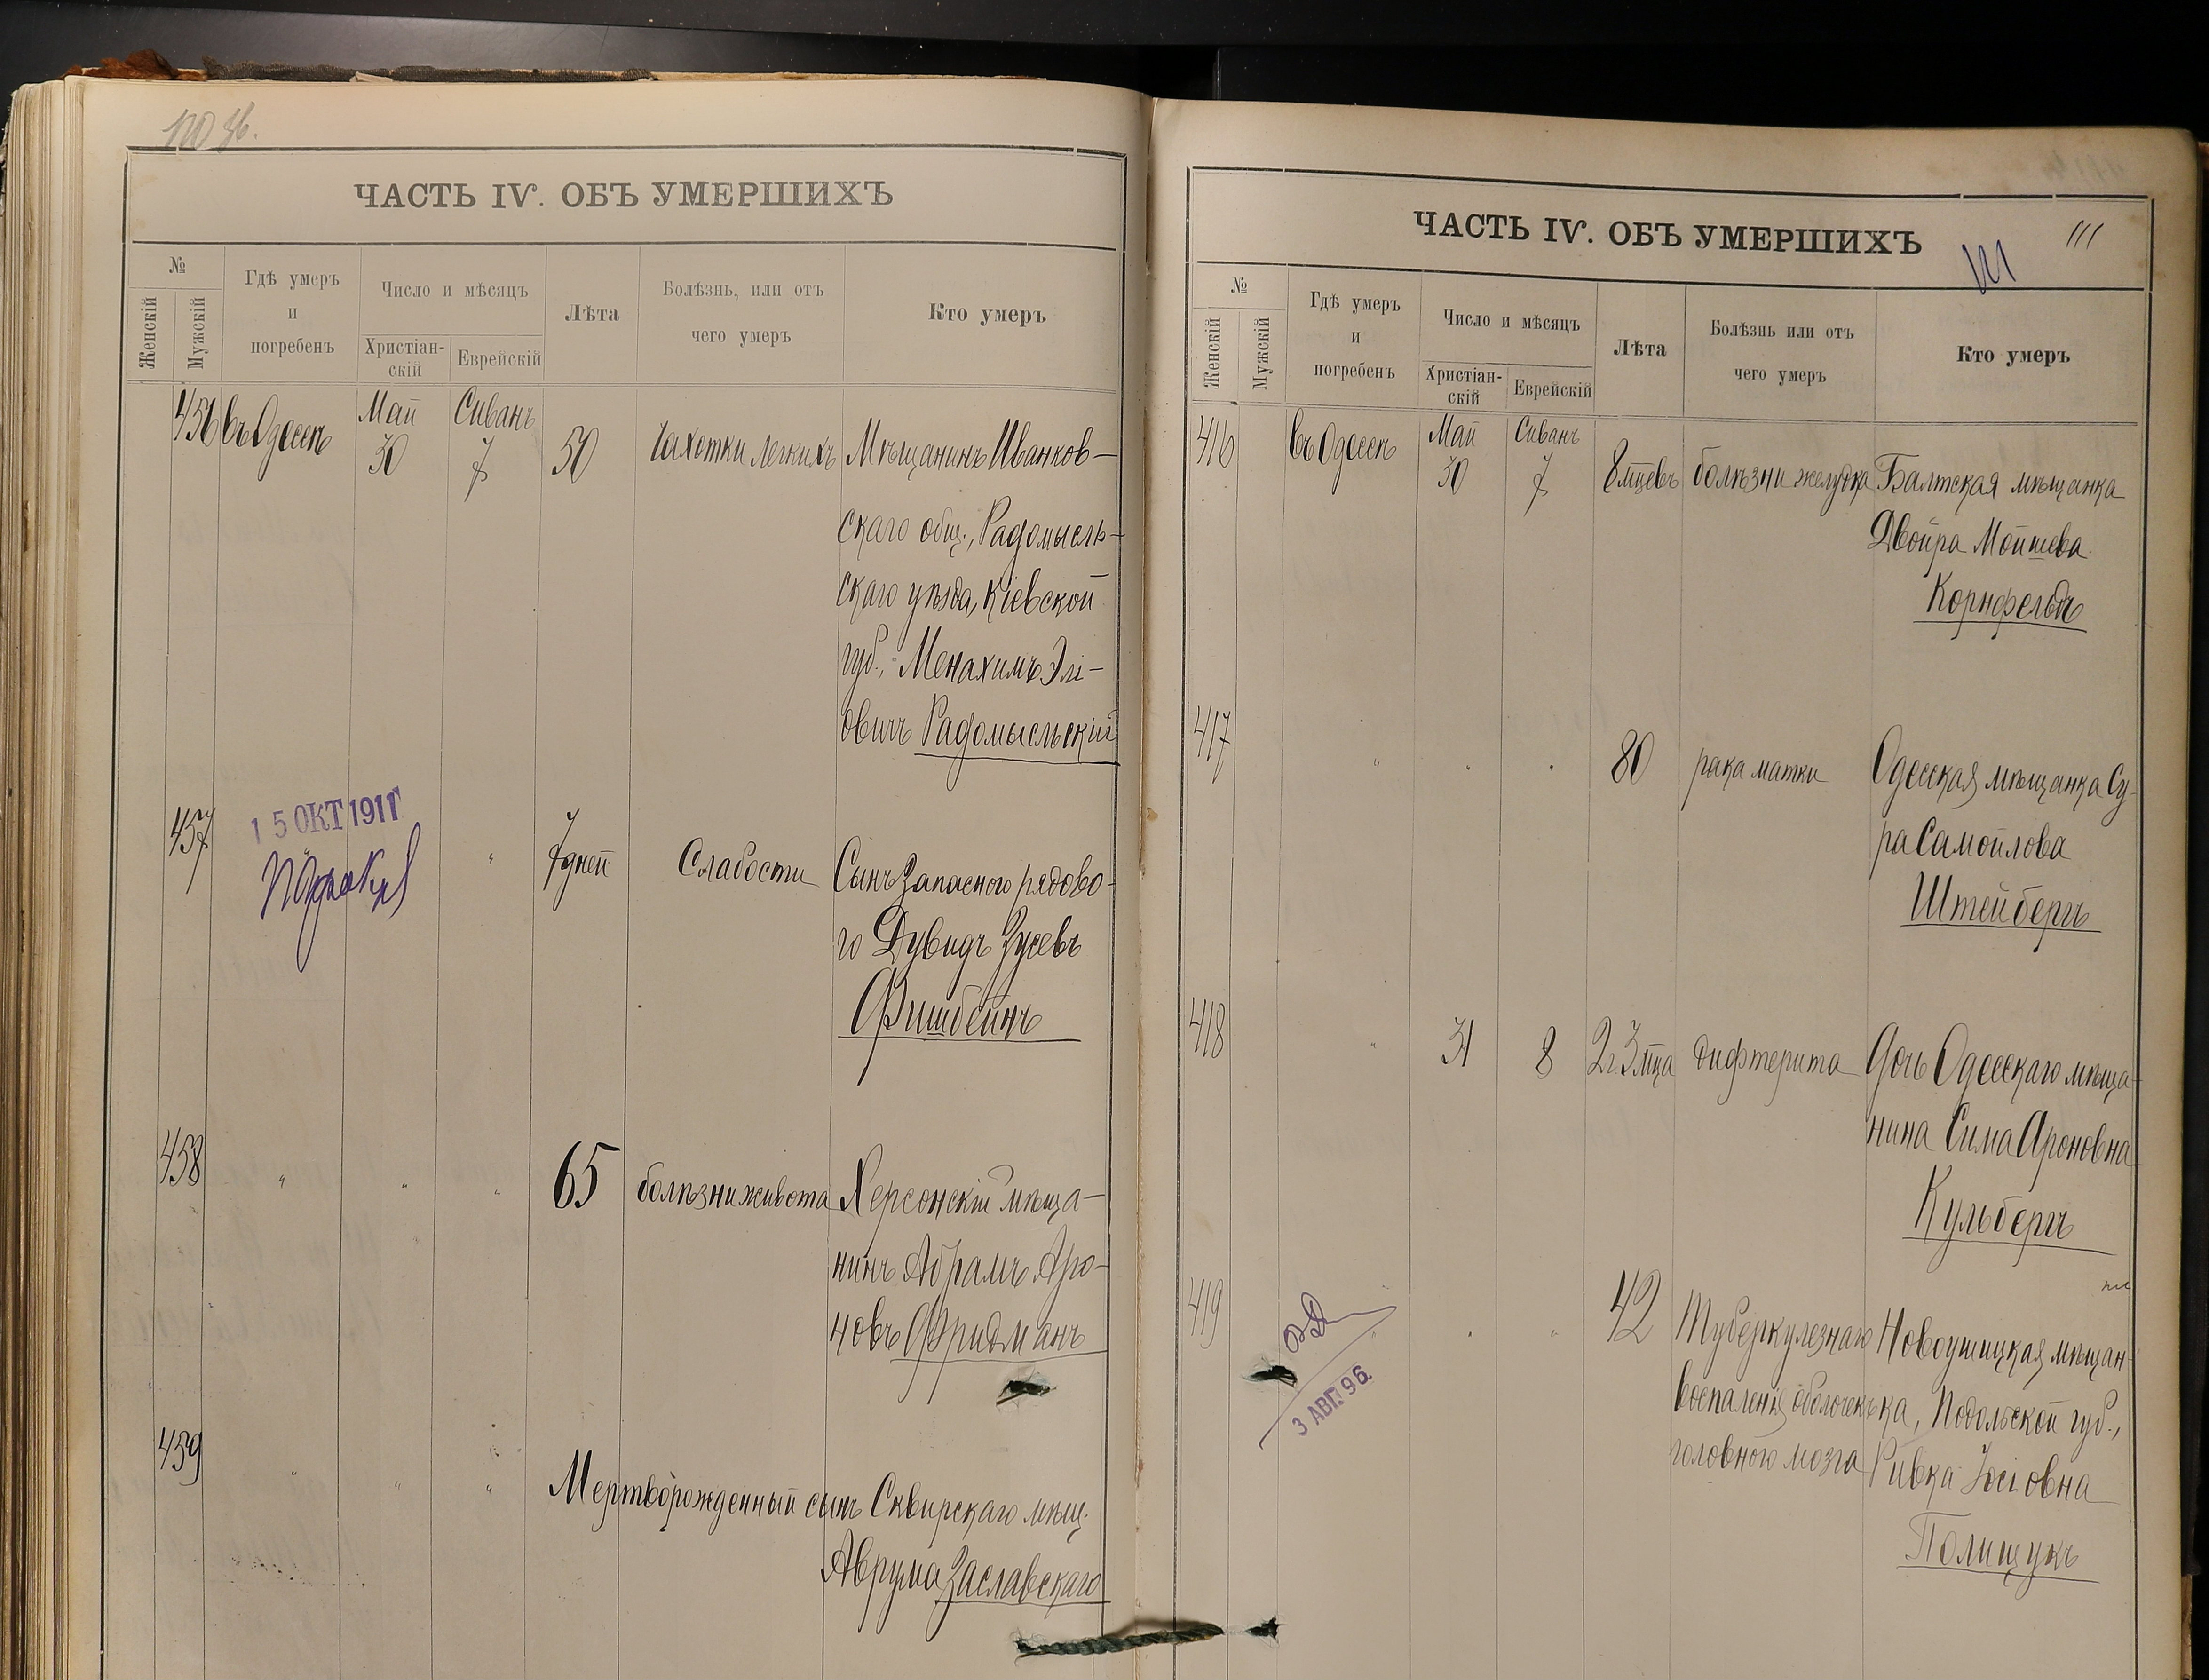 110 об.
ЧАСТЬ IV. ОБЪ УМЕРШИХЪ
№
Женскій
Мужскій
Гдѣ умеръ
и
погребенъ
Число и мѣсяцъ
Христіан-
скій
Еврейскій
Лѣта
Болѣзнь, или отъ
чего умеръ
Кто умеръ
456 въ Одессѣ Май 30 Сиванъ 7 50 Чахотки легкихъ Мѣщанинъ Иванков-
скаго общ., Радомысль-
скаго уѣзда, Кіевской
губ., Менахимъ Элі-
овичъ Радомысльскій
457 " 7 дней Слабости Сынъ Запаснаго рядово-
го Дувидъ Зусевъ
Фишбейнъ
15 ОКТ 1911 Г
458 " " " 65 болѣзни живота Херсонскій мѣща-
нинъ Абрамъ Аро-
новъ Фридманъ
459 " " " Мертворожденный сынъ Сквирскаго мѣщ.
Аврума Заславскаго
ЧАСТЬ IV. ОБЪ УМЕРШИХЪ
111
111
№
Женскій
Мужскій
Гдѣ умеръ
и
погребенъ
Число и мѣсяцъ
Христіан-
скій
Еврейскій
Лѣта
Болѣзнь или отъ
чего умеръ
Кто умеръ
416 въ Одессѣ Май 30 Сиванъ 7 8 мцевъ болѣзни желудка Балтская мѣщанка
Двойра Мошкова
Корнфельдъ
417 " " " 80 рака матки Одесская мѣщанка Су-
ра Самойлова
Штейбергъ
418 " 31 8 2 г 3 мца дифтерита Дочь Одесскаго мѣща-
нина Сима Ароновна
Кульбергъ
419 " " " 42 Туберкулезнаго Новоушицкая мѣщан-
воспаленія оболочекъ ка, Подольской губ.,
головного мозга Ривка Іосіовна
Полищукъ
3 АВГ. 96.